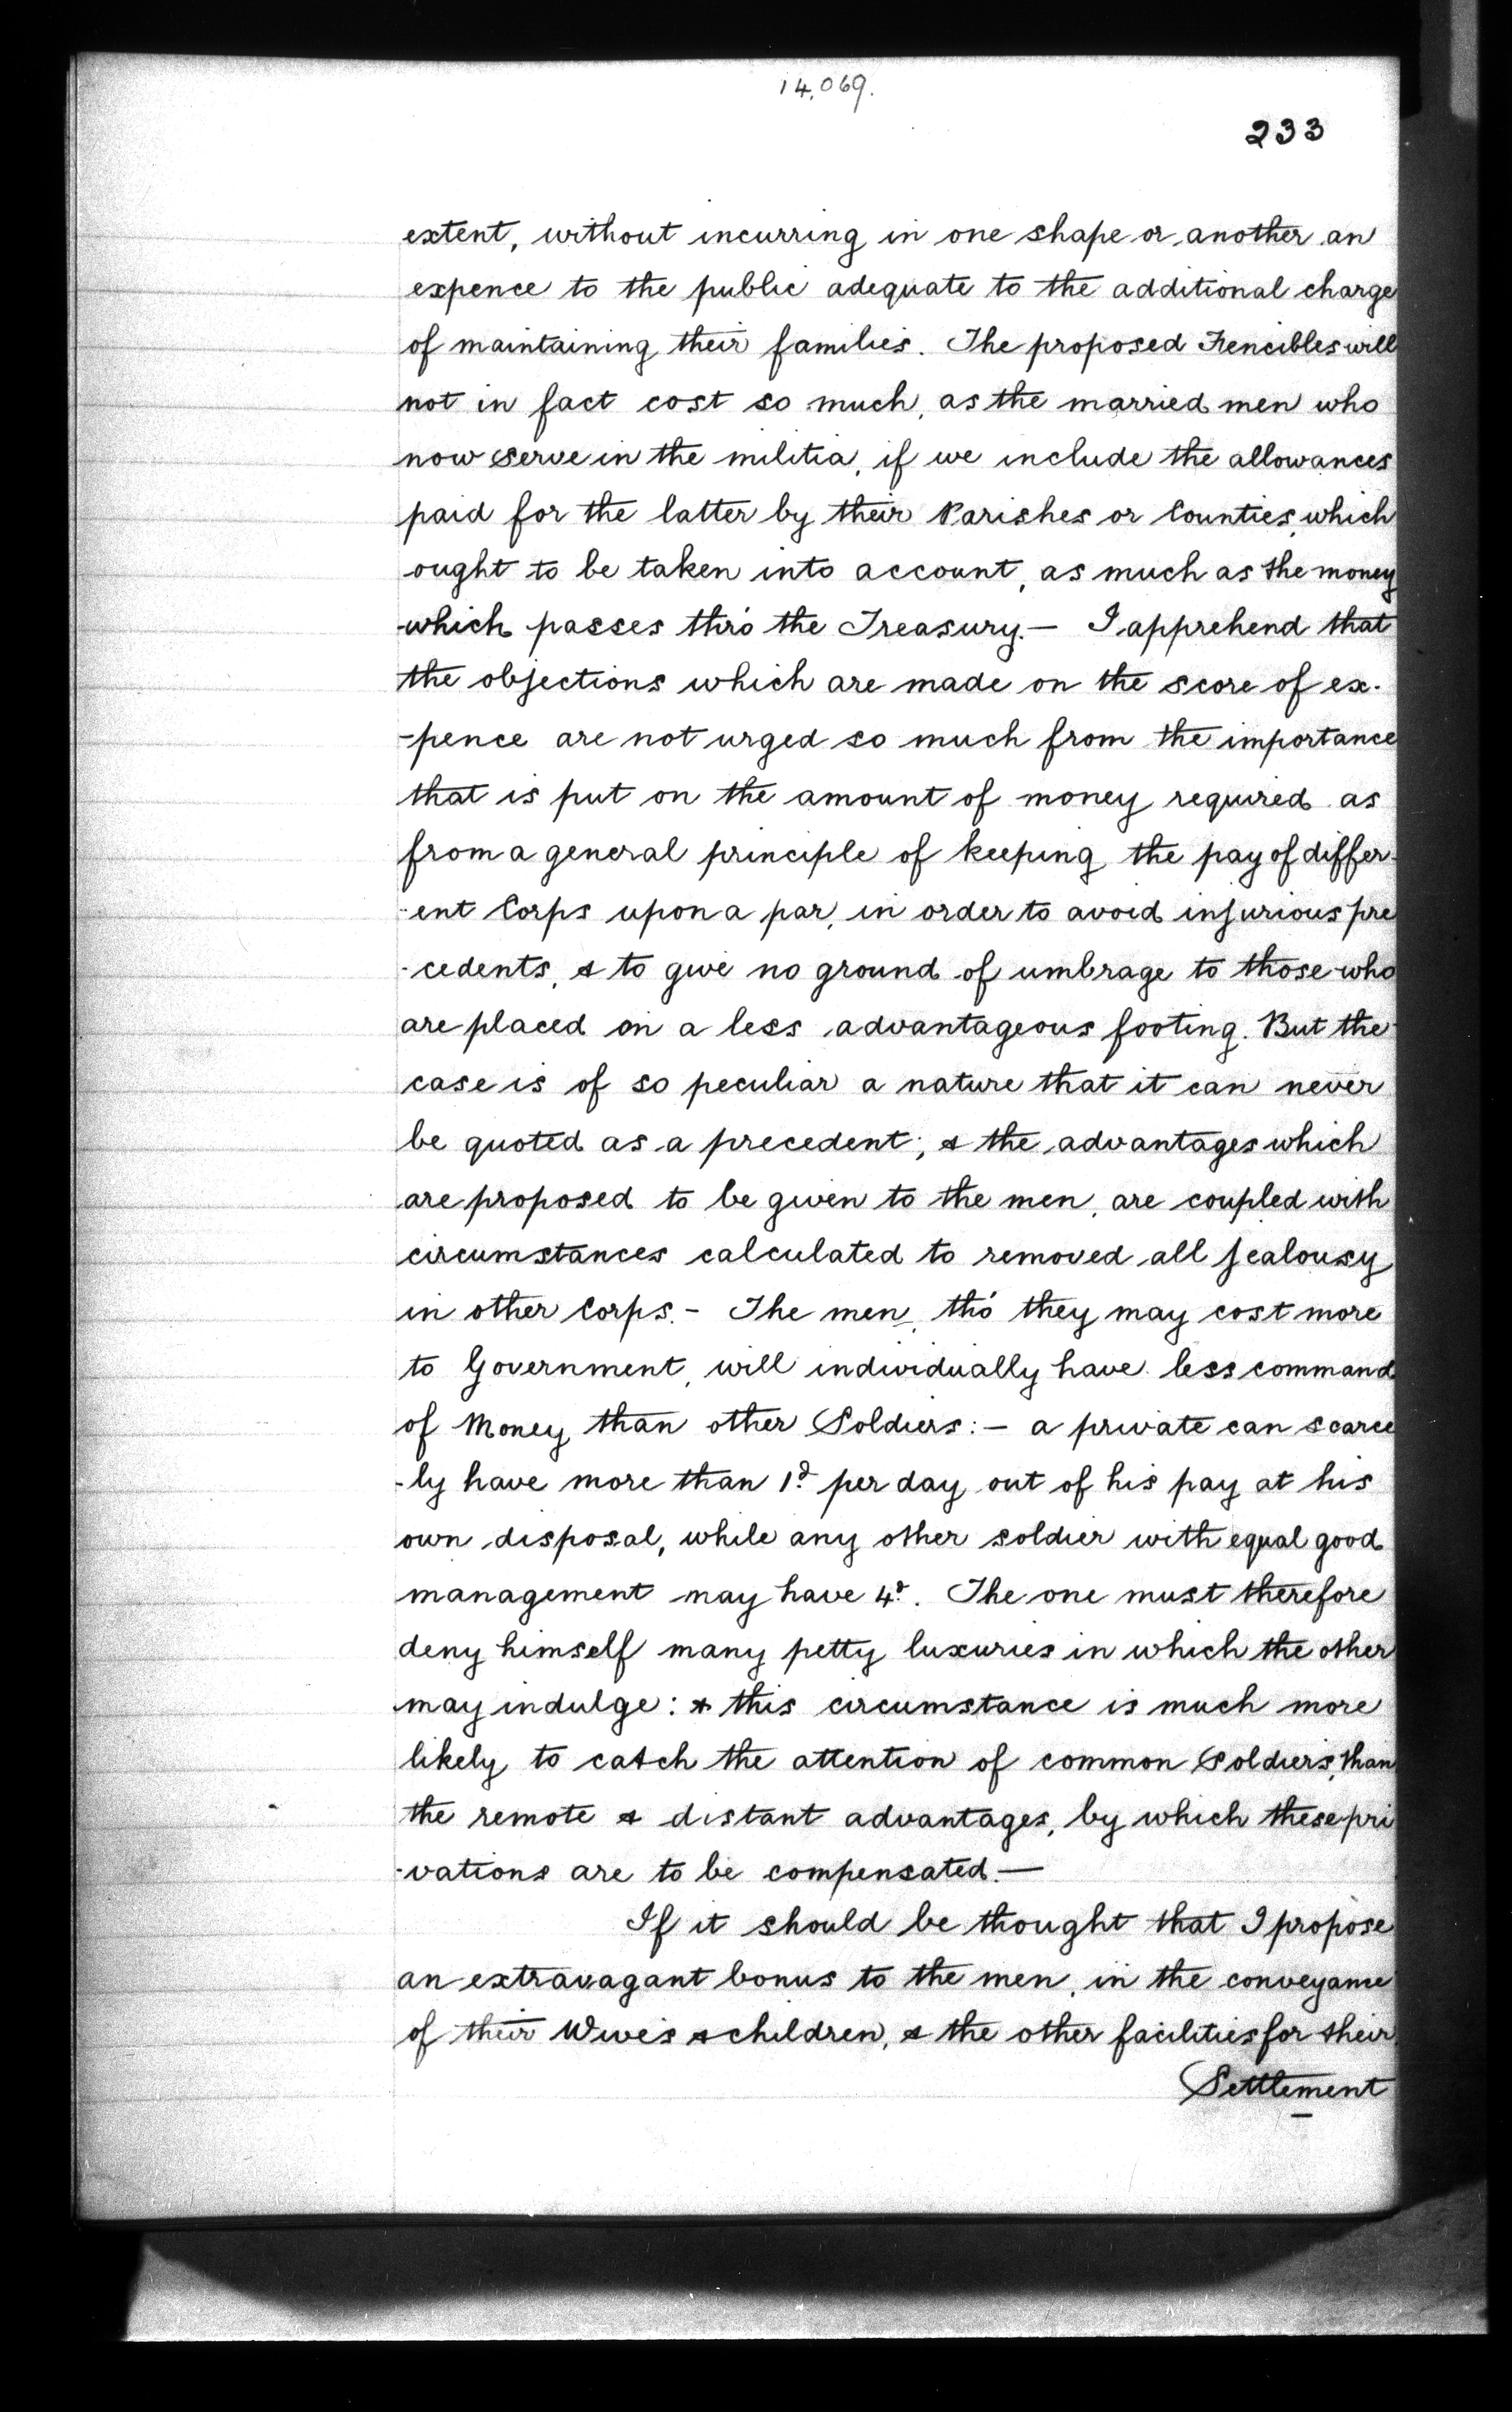 14,069.
233
extent, without incurring in one shape or another an
expence to the public adequate to the additional charge
of maintaining their families. The proposed Fencibles will
not in fact cost so much, as the married men who
now serve in the militia, if we include the allowances
paid for the latter by their Parishes or Counties, which
ought to be taken into account, as much as the money
which passes thro' the Treasury.— I apprehend that
the objections which are made on the score of ex-
-pence are not urged so much from the importance
that is put on the amount of money required as
from a general principle of keeping the pay of differ-
-ent Corps upon a par, in order to avoid injurious pre
-cedents, & to give no ground of umbrage to those who
are placed on a less advantageous footing. But the
case is of so peculiar a nature that it can never
be quoted as a precedent; & the advantages which
are proposed to be given to the men, are coupled with
circumstances calculated to removed all jealousy
in other Corps.- The men, tho' they may cost more
to Government, will individually have less command
of Money than other Soldiers:— a private can scarce
-ly have more than 1d per day out of his pay at his
own disposal, while any other soldier with equal good
management may have 4d. The one must therefore
deny himself many petty luxuries in which the other
may indulge: & this circumstance is much more
likely to catch the attention of common Soldiers, than
the remote & distant advantages, by which these pri
-vations are to be compensated.—
If it should be thought that I propose
an extravagant bonus to the men, in the conveyance
of their Wives & children, & the other facilities for their
Settlement